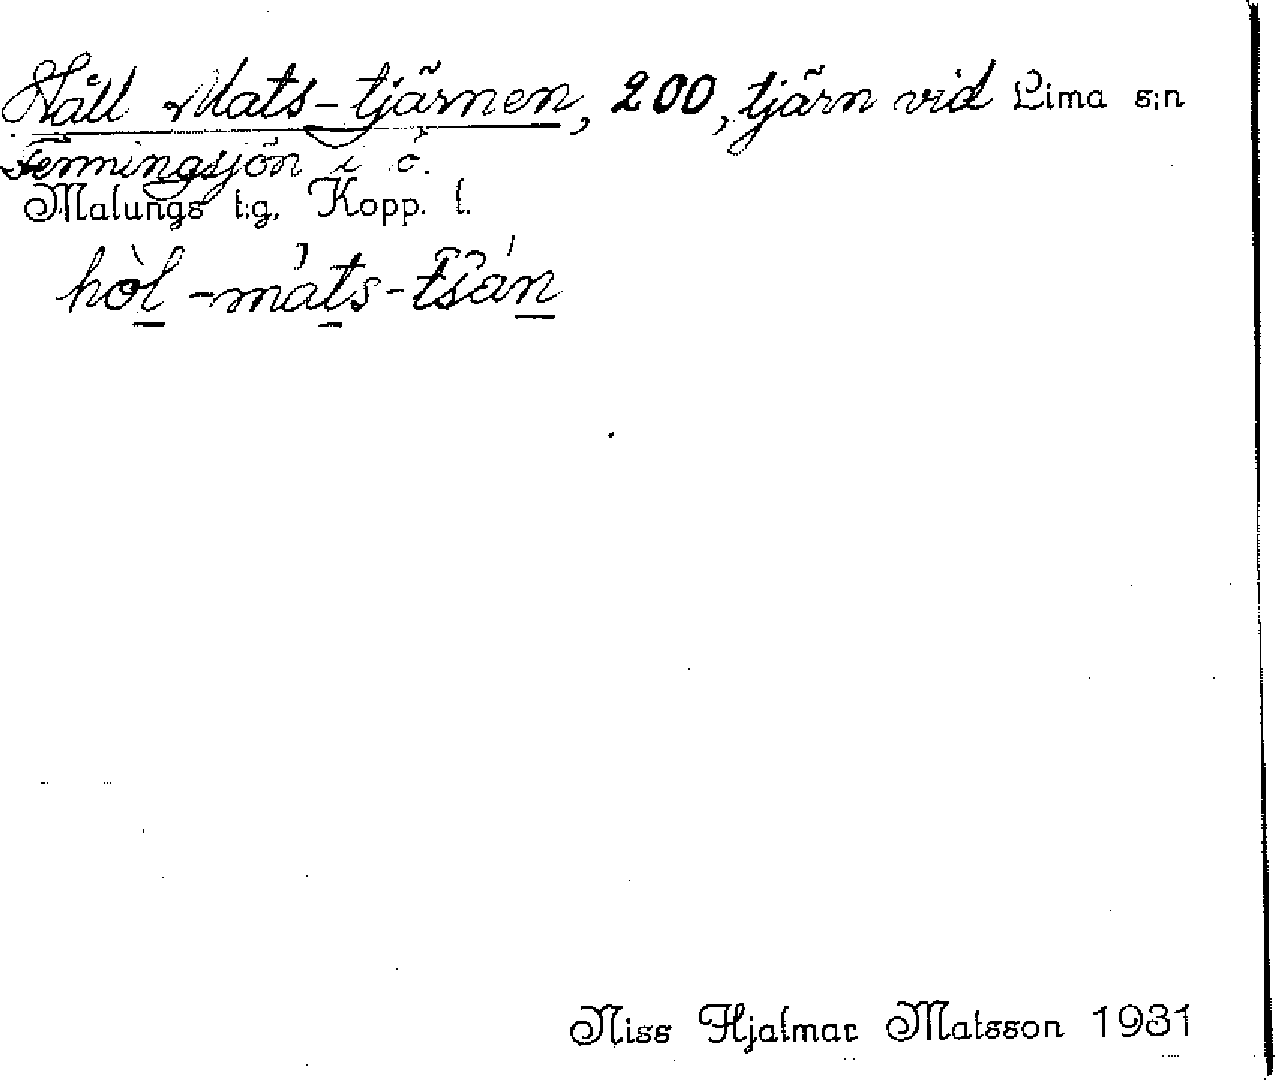 Håll Mats-tjärnen, 200, tjärn vid Lima s:n
Fenningsjön i ö.
Malungs t:g, Kopp. l.
hòl-mats-tšán
Niss Hjalmar Matsson 1931